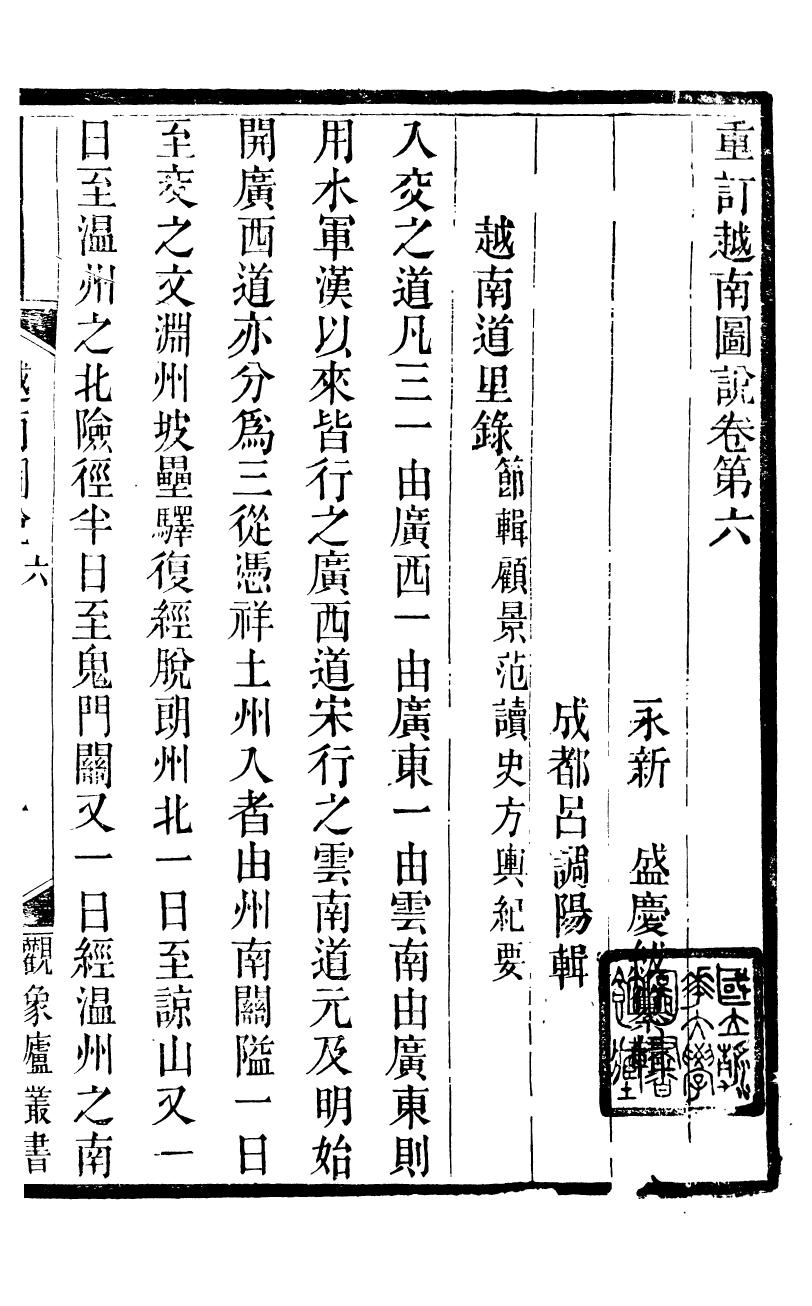 重訂越南圖說卷第六
永新　盛慶紱纂輯
成都呂調陽輯
越南道里錄節輯顧景范讀史方輿紀要
入交之道凡三一由廣西一由廣東一由雲南由廣東則
用水軍漢以來皆行之廣西道宋行之雲南道元及明始
開廣西道亦分爲三從憑祥土州入者由州南關隘一日
至交之文淵州坡壘驛復經脫朗州北一日至諒山又一
日至温州之北險徑半日至鬼門關又一日經温州之南
越南圖說六
觀象廬叢書
國立
大學
圖書